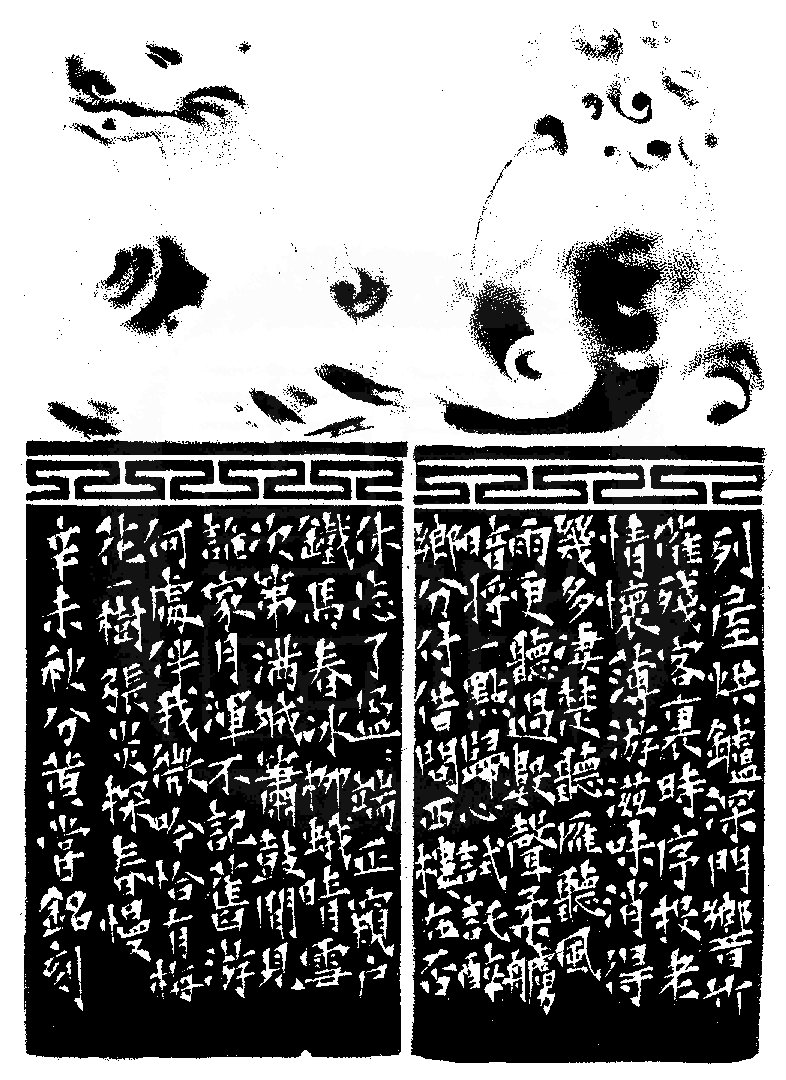 列屋烘鑪深門響竹
催殘客裏時序投老
情懷薄游滋味消得
幾多淒楚聽雁聽風
雨更聽過數聲柔艣
暗將一點歸心試託醉
鄉分付借問西樓在否
休忘了盈:端正窺戶
鐵馬春冰柳蛾晴雪
次第滿城簫鼓閒見
誰家月渾不記舊游
何處伴我微吟恰有梅
花一樹張炎探春慢
辛未秋分黃嘗銘刻